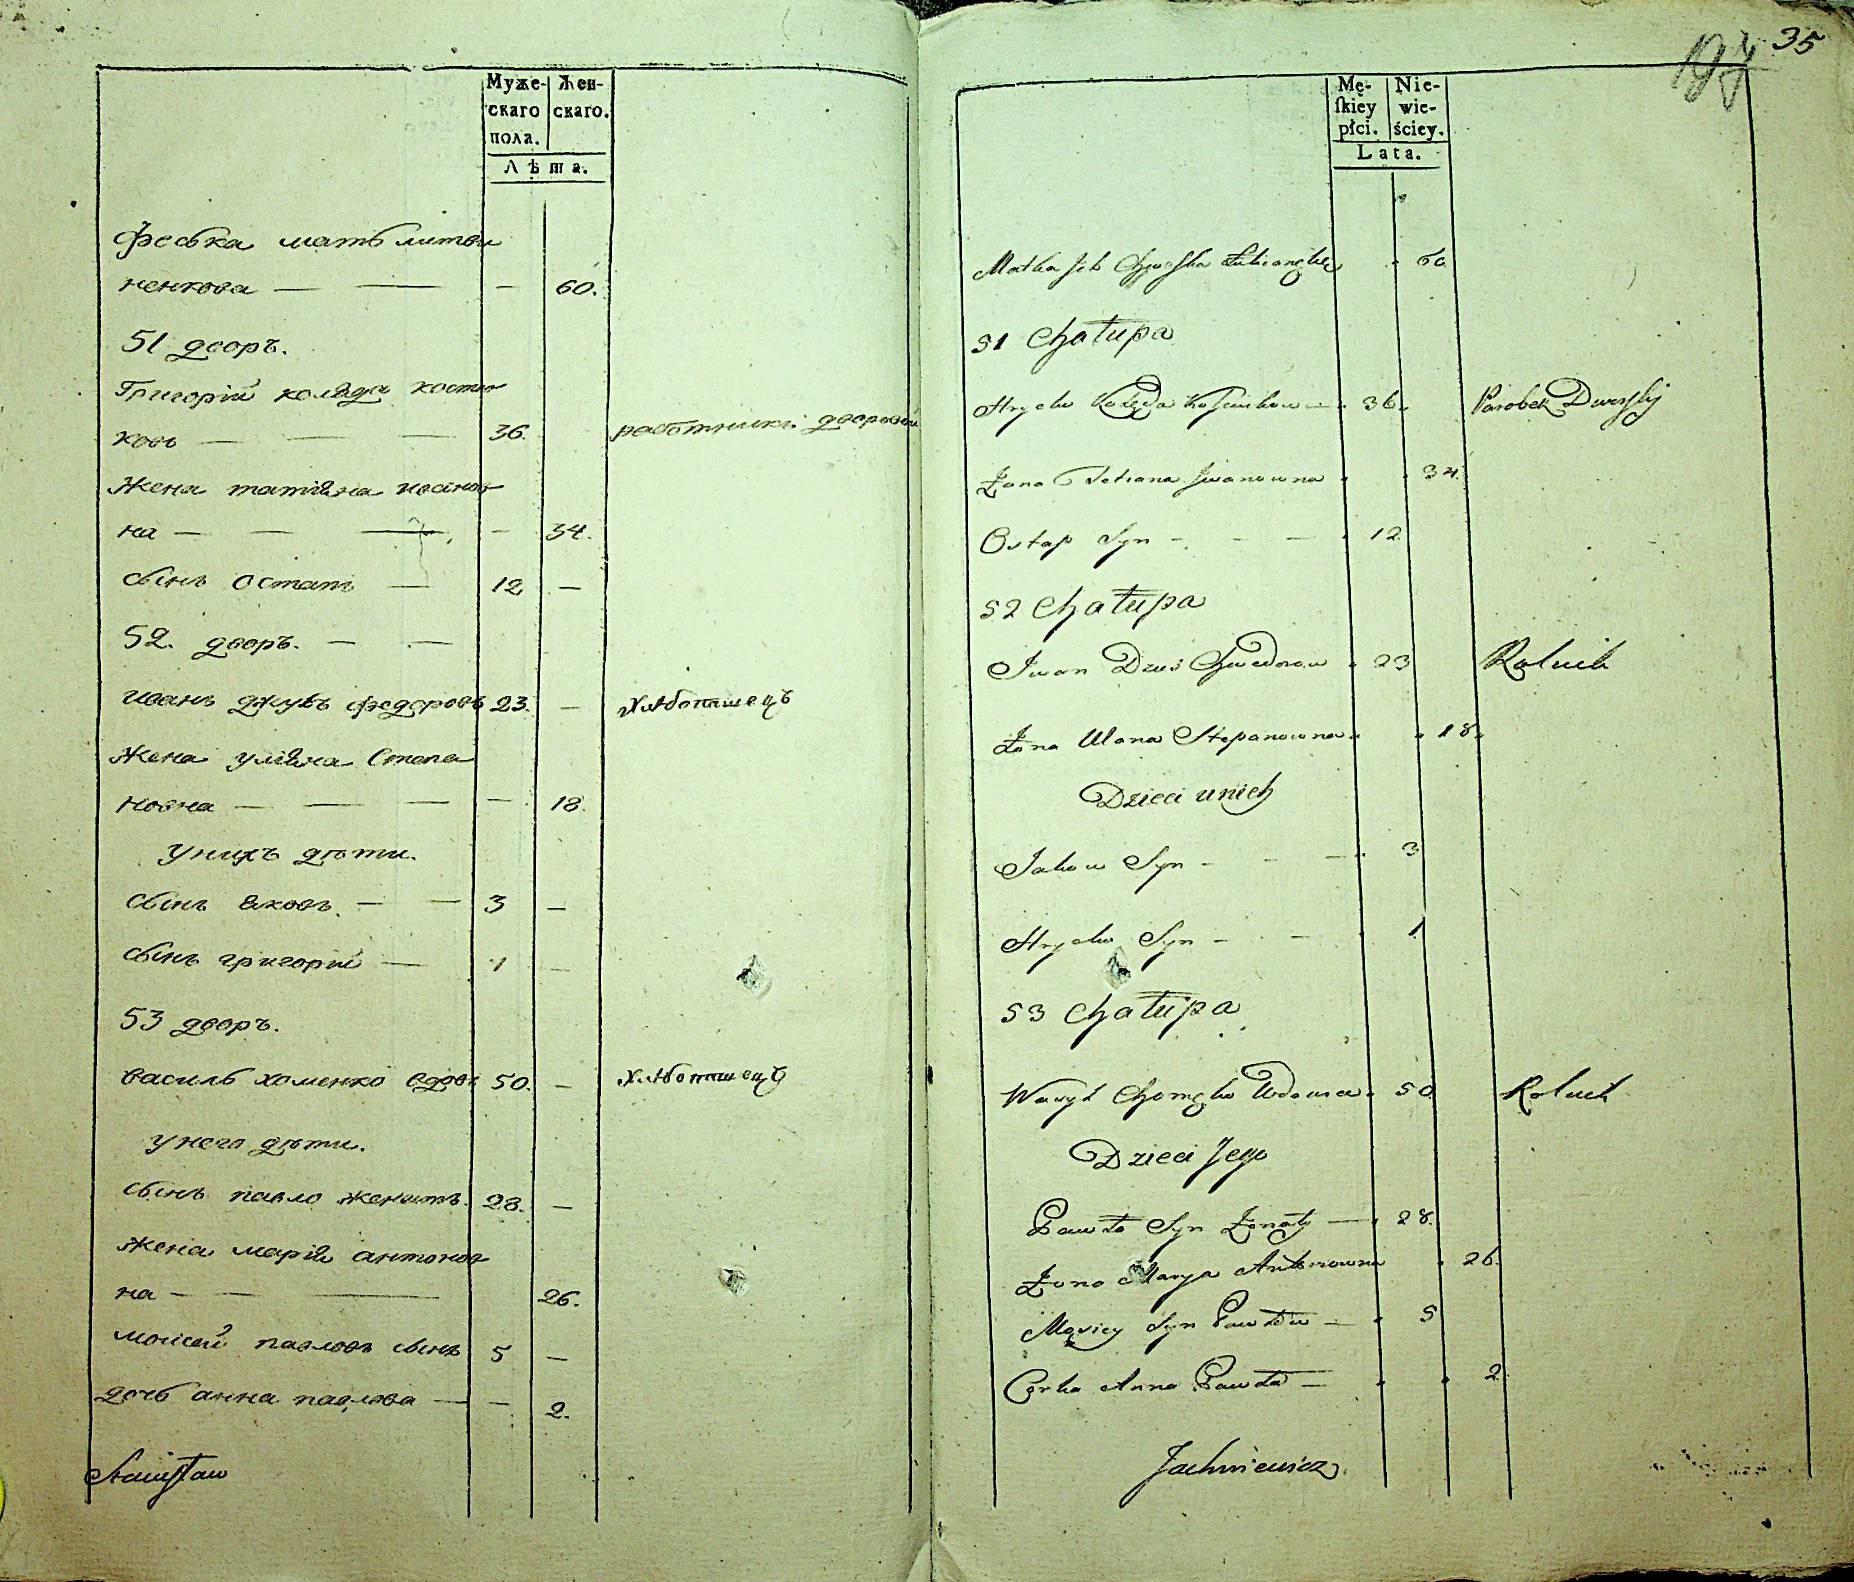 Муже- Жен-
скаго скаго.
пола.
Лѣта.
Феська мать литви
ненкова — — — 60.
51 дворъ.
Григорій коляда костю
ковъ — — — 36. работникъ дворовой
Жена татіяна иванов
на — — — — 34.
сынъ остапъ — 12 —
52. дворъ. — —
иванъ джусъ федоровъ 23. — хлѣбопашецъ
Жена уліяна Степа
новна — — — — 18.
У нихъ дѣти.
сынъ яковъ. — — 3 —
сынъ григорій — 1 —
53 дворъ.
василь хоменко вдовъ 50. — хлѣбопашецъ
у него дѣти.
сынъ павло женатъ. 28. —
Жена марія антонов
на — — — 26.
моисей павловъ сынъ 5 —
дочь анна павлова — — 2.
Stanisław
35
197
Mę- Nie-
ſkiey wie-
płci. ściey.
Lata.
Matka 60
51 Chałupa
Hryćko Kolęda 36 Parobek Dworski
Żona Tetiana Iwanowna 34.
Ostap Syn — — — 12
52 Chałupa
Iwan Dzus Chwedorow 23 Rolnik
Żona Ulana Stepanowna 18
Dzieci u nich
Jakow Syn — — — 3
Hryćko Syn — — 1
53 Chałupa
Wasyl Chomęko Wdowiec 50 Rolnik
Dzieci Jego
Pawło Syn Żonaty — 28.
Żona Marya Antonowna 26.
Mosiey Syn Pawłów — 5
Corka Anna Pawła — 2
Jachniewicz